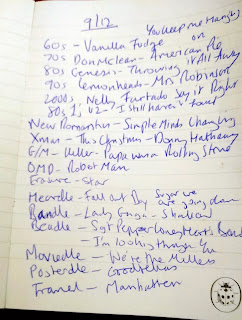 9/12
You keep me Hanging
60s - Vanilla Fudge on
70s Don McLean - American Pie
80s Genesis - Throwing it All Away
90s Lemonheads - Mrs Robinson
2000s Nelly Furtado Say it Right
80s U2 - I Still haven't found
New Romantics - Simple Minds Changeling
Xmas - This Christmas - Donny Hathaway
G/M - Killer - Papa was a Rolling Stone
OMD - Robot Man
Erasure - Star
Heardle - Fall out Boy Sugar we are going down
Bandle - Lady Gaga - Shallow
Beadle - Sgt Pepper Lonely Hearts Band
- I'm looking through You
Moviedle - We're the Millers
Posterdle - Goodfellas
Framed - Manhattan